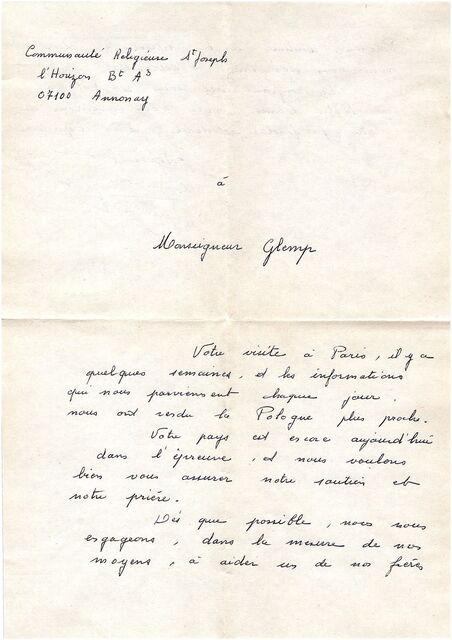 Communauté Religieuse St Joseph
l'Horizon Bt A3
07100 Annonay
à
Monseigneur Glemp
Votre visite à Paris, il y a
quelques semaines, et les informations
qui nous parviennent chaque jour,
nous ont rendu la Pologne plus proche.
Votre pays est encore aujourd'hui
dans l'épreuve, et nous voulons
bien vous assurer notre soutien et
notre prière.
Dès que possible, nous nous
engageons, dans la mesure de nos
moyens, à aider un de nos frères